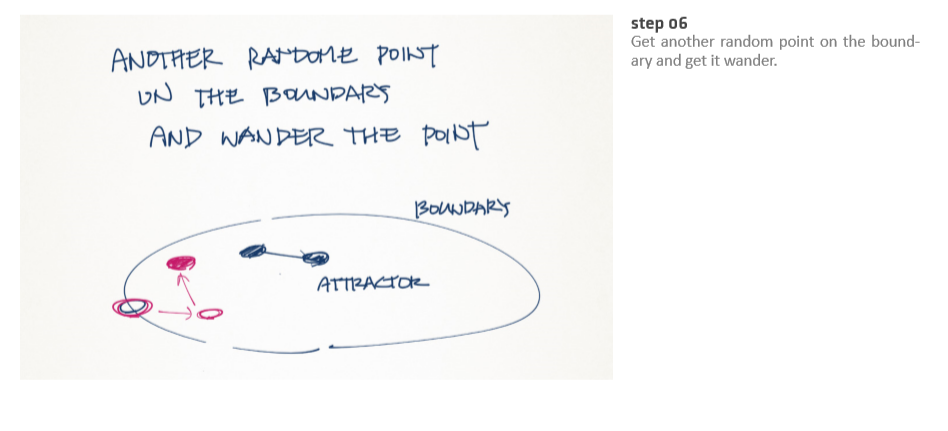 ANOTHER RANDOME POINT
ON THE BOUNDARY
AND WANDER THE POINT
BOUNDARY
ATTRACTOR
step 06
Get another random point on the bound-
ary and get it wander.